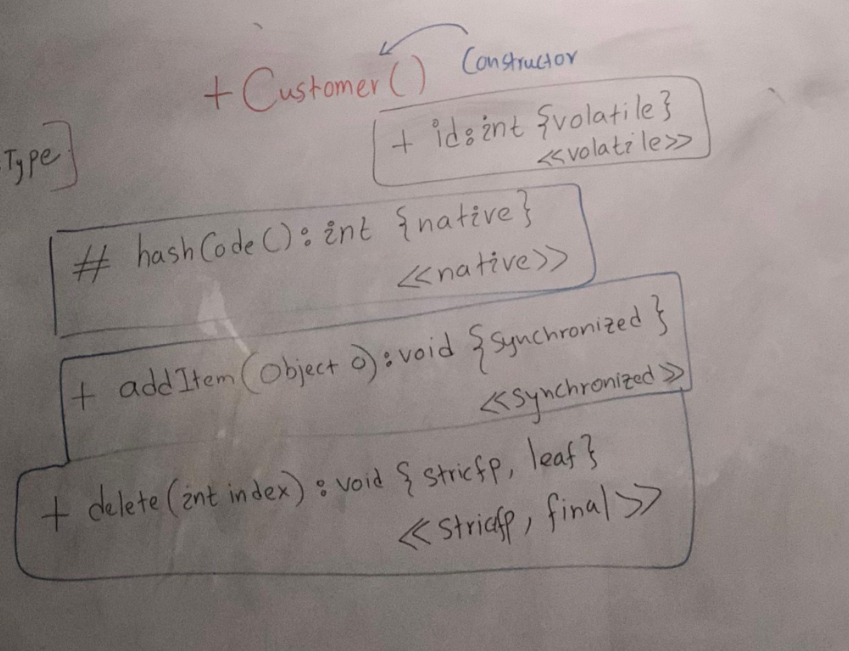 + Customer() Constructor
+ id:int {volatile}
<<volatile>>
Type]
# hashCode():int {native}
<<native>>
+ addItem(Object o):void {synchronized}
<<synchronized>>
+ delete(int index):void {stricfp, leaf}
<<stricfp, final>>